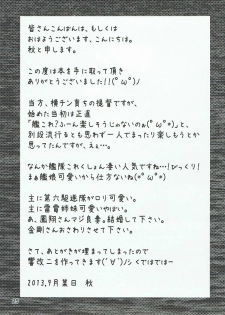 皆さんこんばんは、もしくは
おはようございます、こんにちは。
秋と申します。
この度は本を手に取って頂き
ありがとうございました!!(°ω°)ノ
当方、横チン育ちの提督ですが、
始めた当初は正直
「艦これ?ふーん楽しそうじゃないのぉ(°ω°*)」と、
別段流行るとも思わず一人でまったり楽しもうとか
思ってたんですが、えぇ…。
なんか艦隊これくしょん凄い人気ですね…!びっくり!
まぁ艦娘可愛いから仕方ないね(°ω°*)
主に第六駆逐隊がロリ可愛い。
主に雷電姉妹可愛くて可愛い。
あ、鳳翔さんマジ良妻。結婚して下さい。
金剛さんおさわりさせて下さい。
さて、あとがきが埋まってしまったので
響改二を作ってきます(´∀`)ノシではではー
2013,9月某日 秋
25